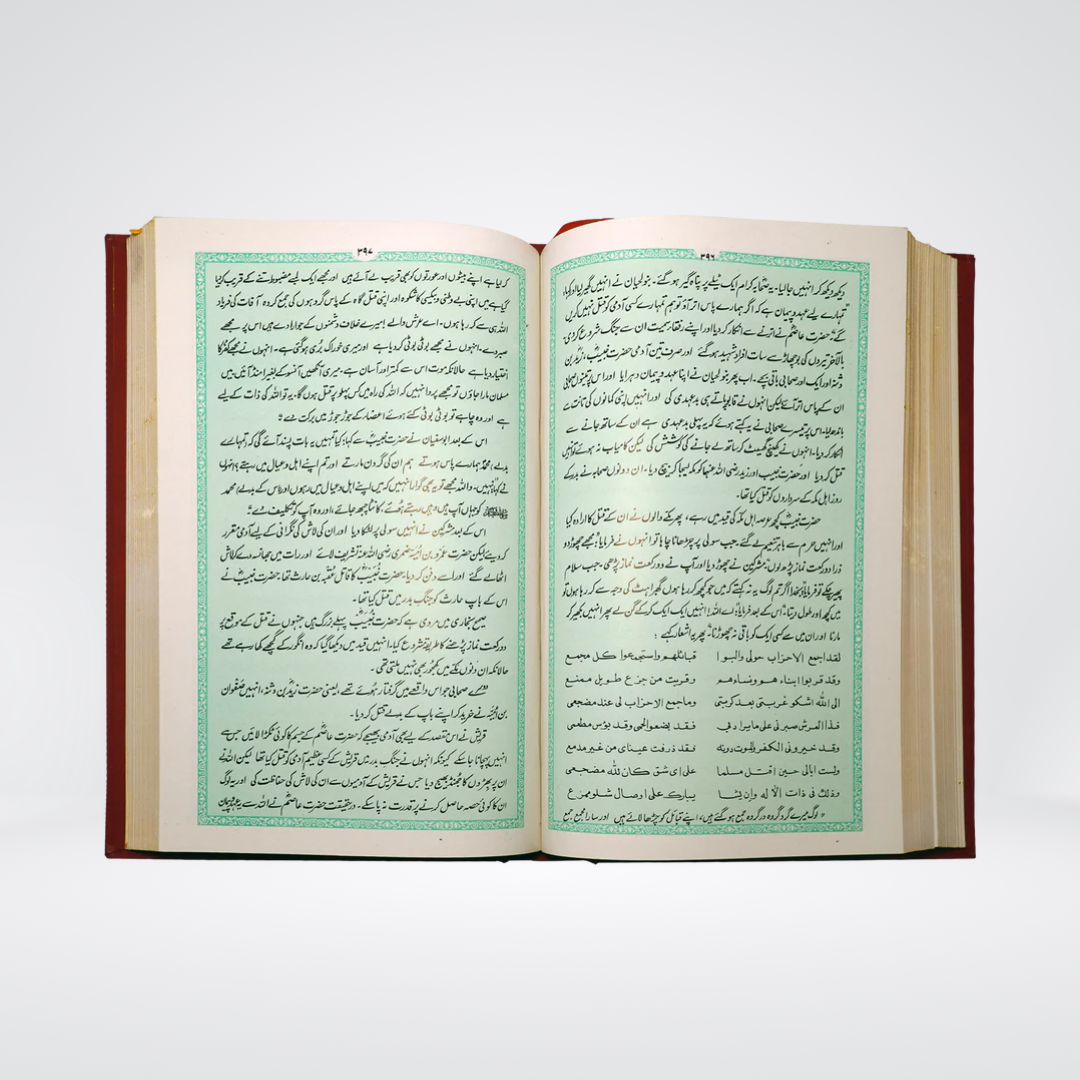 ۳۹۶
دیکھ دیکھ کر انہیں جا لیا۔ یہ صحابہ کرام ایک ٹیلے پر پناہ گیر ہو گئے۔ بنو لحیان نے انہیں گھیر لیا اور کہا،
تمہارے لیے عہد و پیمان ہے کہ اگر ہمارے پاس اتر آؤ تو ہم تمہارے کسی آدمی کو قتل نہیں کریں
گے۔ حضرت عاصمؓ نے اترنے سے انکار کر دیا اور اپنے رفقاء سمیت ان سے جنگ شروع کر دی۔
بالآخر تیروں کی بوچھاڑ سے سات افراد شہید ہو گئے اور صرف تین آدمی حضرت خبیبؓ، زیدؓ بن
دثنہ اور ایک اور صحابی باقی بچے۔ اب پھر بنو لحیان نے اپنا عہد و پیمان دہرایا اور اس پر تینوں صحابی
ان کے پاس اتر آئے لیکن انہوں نے قابو پاتے ہی بدعہدی کی اور انہیں اپنی کمانوں کی تانت سے
باندھ لیا۔ اس پر تیسرے صحابی نے یہ کہتے ہوئے کہ یہ پہلی بدعہدی ہے ان کے ساتھ جانے سے
انکار کر دیا۔ انہوں نے کھینچ گھسیٹ کر ساتھ لے جانے کی کوشش کی لیکن کامیاب نہ ہوئے تو انہیں
قتل کر دیا اور حضرت خبیب اور زید رضی اللہ عنہما کو مکہ لیجا کر بیچ دیا۔ ان دونوں صحابہ نے بدر کے
روز اہل مکہ کے سرداروں کو قتل کیا تھا۔
حضرت خبیبؓ کچھ عرصہ اہل مکہ کی قید میں رہے، پھر مکے والوں نے ان کے قتل کا ارادہ کیا
اور انہیں حرم سے باہر تنعیم لے گئے۔ جب سولی پر چڑھانا چاہا تو انہوں نے فرمایا "مجھے چھوڑ دو
ذرا دو رکعت نماز پڑھ لوں" مشرکین نے چھوڑ دیا اور آپ نے دو رکعت نماز پڑھی۔ جب سلام
پھیر چکے تو فرمایا "بخدا اگر تم لوگ یہ نہ کہتے کہ میں جو کچھ کر رہا ہوں گھبراہٹ کی وجہ سے کر رہا ہوں تو
میں کچھ اور طول دیتا" اس کے بعد فرمایا "اے اللہ! انہیں ایک ایک کر کے گن لے پھر انہیں بکھیر کر
مارنا اور ان میں سے کسی ایک کو باقی نہ چھوڑنا" پھر یہ اشعار کہے :
لقد اجمع الاحزاب حولی والبوا قبائلهم واستجمعوا کل مجمع
وقد قربوا ابناءهم ونساءهم وقربت من جزع طویل ممنع
الی الله اشکو غربتی بعد کربتی وما جمع الاحزاب لی عند مضجعی
فذا العرش صبرنی علی ما یراد بی فقد بضعوا لحمی وقد بؤس مطعمی
وقد خیرونی الکفر والموت دونه فقد ذرفت عینای من غیر مدمع
ولست ابالی حین اقتل مسلما علی ای شق کان لله مضجعی
وذلک فی ذات الاله وان یشا یبارک علی اوصال شلو ممزع
"لوگ میرے گرد گروہ در گروہ جمع ہو گئے ہیں، اپنے قبائل کو چڑھا لائے ہیں اور سارا مجمع جمع
۳۹۷
کر لیا ہے اپنے بیٹوں اور عورتوں کو بھی قریب لے آئے ہیں اور مجھے ایک لمبے مضبوط تنے کے قریب کر دیا
گیا ہے میں اپنی بے وطنی و بیکسی کا شکوہ اور اپنی قتل گاہ کے پاس گروہوں کی جمع کردہ آفات کی فریاد
اللہ ہی سے کر رہا ہوں۔ اے عرش والے! میرے خلاف دشمنوں کے جو ارادے ہیں اس پر مجھے
صبر دے۔ انہوں نے مجھے بوٹی بوٹی کر دیا ہے اور میری خوراک بری ہو گئی ہے۔ انہوں نے مجھے کفر کا
اختیار دیا ہے حالانکہ موت اس سے کمتر اور آسان ہے، میری آنکھیں آنسو کے بغیر امنڈ آئیں۔ میں
مسلمان مارا جاؤں تو مجھے پروا نہیں کہ اللہ کی راہ میں کس پہلو پر قتل ہوں گا۔ یہ تو اللہ کی ذات کے لیے
ہے اور وہ چاہے تو بوٹی بوٹی کئے ہوئے اعضاء کے جوڑ جوڑ میں برکت دے"
اس کے بعد ابوسفیان نے حضرت خبیبؓ سے کہا: کیا تمہیں یہ بات پسند آئے گی کہ تمہارے
بدلے محمدؐ ہمارے پاس ہوتے ہم ان کی گردن مارتے اور تم اپنے اہل و عیال میں رہتے؟ انہوں
نے کہا نہیں۔ واللہ مجھے تو یہ بھی گوارا نہیں کہ میں اپنے اہل و عیال میں رہوں اور اس کے بدلے محمد
ﷺ کو جہاں آپ ہیں وہیں رہتے ہوئے کانٹا چبھ جائے، اور وہ آپ کو تکلیف دے"
اس کے بعد مشرکین نے انہیں سولی پر لٹکا دیا اور ان کی لاش کی نگرانی کے لیے آدمی مقرر
کر دیے لیکن حضرت عمروؓ بن امیہ ضمری رضی اللہ عنہ تشریف لائے اور رات میں جھانسہ دے کر لاش
اٹھا لے گئے اور اسے دفن کر دیا۔ حضرت خبیبؓ کا قاتل عقبہ بن حارث تھا۔ حضرت خبیبؓ نے
اس کے باپ حارث کو جنگ بدر میں قتل کیا تھا۔
صحیح بخاری میں مروی ہے کہ حضرت خبیبؓ پہلے بزرگ ہیں جنہوں نے قتل کے موقع پر
دو رکعت نماز پڑھنے کا طریقہ شروع کیا۔ انہیں قید میں دیکھا گیا کہ وہ انگور کے گچھے کھا رہے تھے
حالانکہ ان دنوں مکے میں کھجور بھی نہیں ملتی تھی۔
دوسرے صحابی جو اس واقعے میں گرفتار ہوئے تھے، یعنی حضرت زیدؓ بن دثنہ، انہیں صفوان
بن امیہ نے خرید کر اپنے باپ کے بدلے قتل کر دیا۔
قریش نے اس مقصد کے لیے بھی آدمی بھیجے کہ حضرت عاصمؓ کے جسم کا کوئی ٹکڑا لائیں جس سے
انہیں پہچانا جا سکے کیونکہ انہوں نے جنگ بدر میں قریش کے کسی عظیم آدمی کو قتل کیا تھا لیکن اللہ نے
ان پر بھڑوں کا جھنڈ بھیج دیا جس نے قریش کے آدمیوں سے ان کی لاش کی حفاظت کی اور یہ لوگ
ان کا کوئی حصہ حاصل کرنے پر قدرت نہ پا سکے۔ درحقیقت حضرت عاصمؓ نے اللہ سے یہ عہد و پیمان